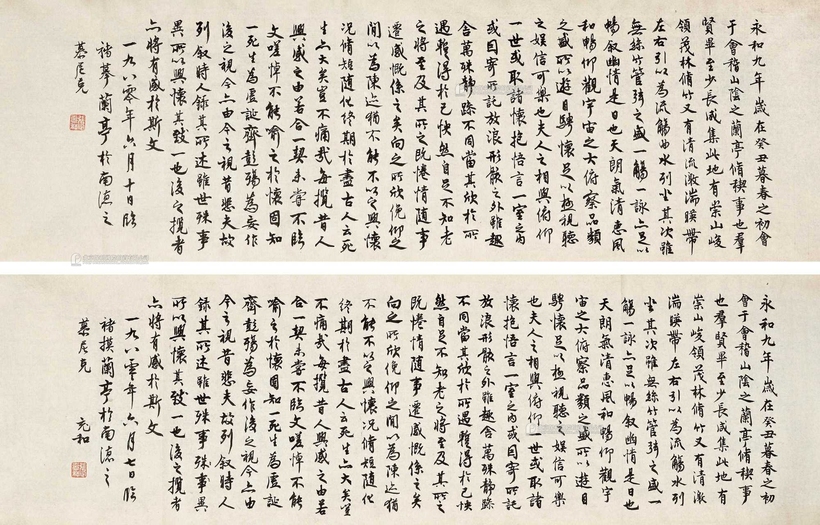 永和九年歲在癸丑暮春之初會
于會稽山陰之蘭亭脩禊事也羣
賢畢至少長咸集此地有崇山峻
領茂林脩竹又有清流激湍暎帶
左右引以為流觴曲水列坐其次雖
無絲竹管弦之盛一觴一詠亦足以
暢叙幽情是日也天朗氣清惠風
和暢仰觀宇宙之大俯察品類
之盛所以遊目騁懷足以極視聽
之娛信可樂也夫人之相與俯仰
一世或取諸懷抱悟言一室之內
或因寄所託放浪形骸之外雖趣
舍萬殊靜躁不同當其欣於所
遇蹔得於己怏然自足不知老
之將至及其所之既惓情隨事
遷感慨係之矣向之所欣俛仰之
間以為陳迹猶不能不以之興懷
況脩短隨化終期於盡古人云死
生亦大矣豈不痛哉每攬昔人
興感之由若合一契未嘗不臨
文嗟悼不能喻之於懷固知
一死生為虛誕齊彭殤為妄作
後之視今亦由今之視昔悲夫故
列叙時人錄其所述雖世殊事
異所以興懷其致一也後之攬者
亦將有感於斯文
一九八〇年六月十日臨
褚摹蘭亭於南德之
慕尼克
永和九年歲在癸丑暮春之初
會于會稽山陰之蘭亭脩禊事
也羣賢畢至少長咸集此地有
崇山峻領茂林脩竹又有清流激
湍暎帶左右引以為流觴曲水列
坐其次雖無絲竹管弦之盛一
觴一詠亦足以暢叙幽情是日也
天朗氣清惠風和暢仰觀宇
宙之大俯察品類之盛所以遊目
騁懷足以極視聽之娛信可樂
也夫人之相與俯仰一世或取諸
懷抱悟言一室之內或因寄所託
放浪形骸之外雖趣舍萬殊靜躁
不同當其欣於所遇蹔得於己怏
然自足不知老之將至及其所之
既惓情隨事遷感慨係之矣
向之所欣俛仰之間以為陳迹猶
不能不以之興懷況脩短隨化
終期於盡古人云死生亦大矣豈
不痛哉每攬昔人興感之由若
合一契未嘗不臨文嗟悼不能
喻之於懷固知一死生為虛誕
齊彭殤為妄作後之視今亦由
今之視昔悲夫故列叙時人
錄其所述雖世殊事殊事異
所以興懷其致一也後之攬者
亦將有感於斯文
一九八〇年六月七日臨
褚摸蘭亭於南德之
慕尼克 充和